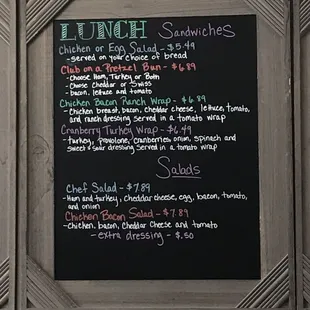 LUNCH Sandwiches
Chicken or Egg Salad - $5.49
- served on your choice of bread
Club on a Pretzel Bun - $6.89
- choose Ham, Turkey or Both
- Choose Cheddar or Swiss
- bacon, lettuce and tomato
Chicken Bacon Ranch Wrap - $6.89
- Chicken breast, bacon, cheddar cheese, lettuce, tomato,
and ranch dressing served in a tomato wrap
Cranberry Turkey Wrap - $6.49
- turkey, provolone, cranberries, onion, spinach and
sweet & sour dressing served in a tomato wrap
Salads
Chef Salad - $7.89
- Ham and turkey, cheddar cheese, egg, bacon, tomato,
and onion
Chicken Bacon Salad - $7.89
- Chicken, bacon, Cheddar Cheese and tomato
- extra dressing - $.50